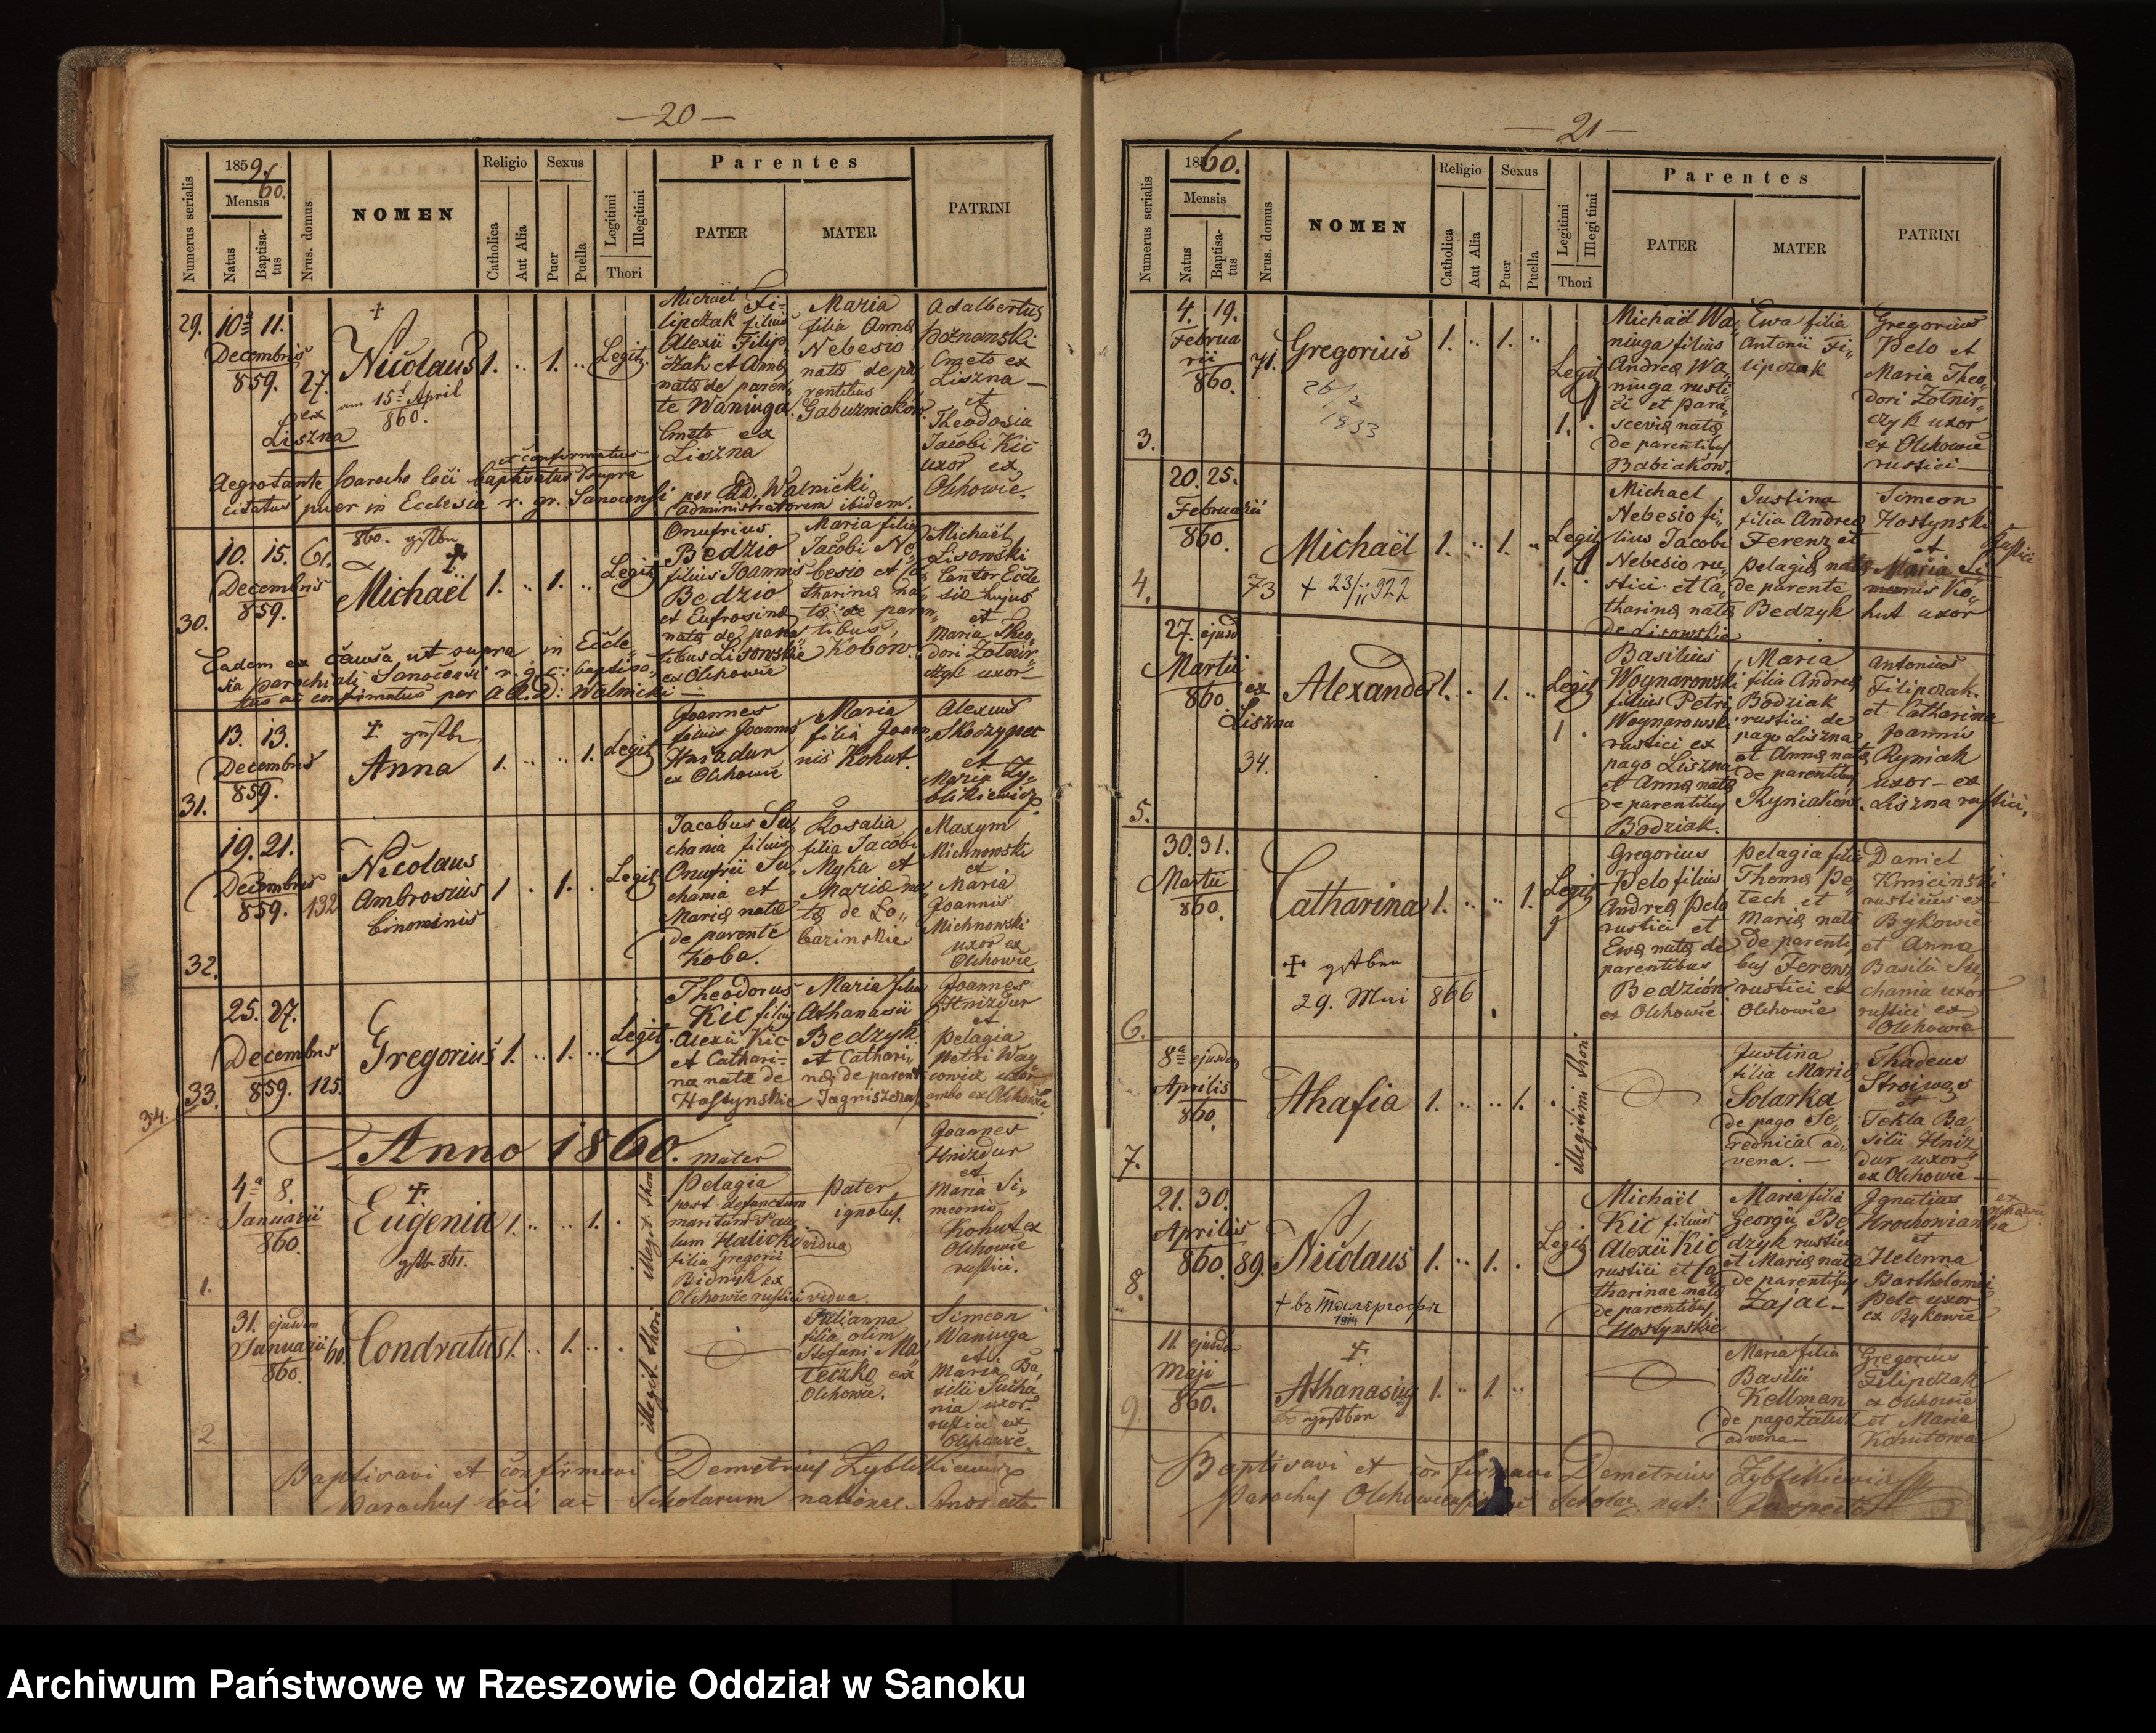 — 20 —
Numerus serialis
1859/60.
Mensis
Natus
Baptisatus
Nrus. domus
NOMEN
Religio
Catholica
Aut Alia
Sexus
Puer
Puella
Legitimi
Illegitimi
Thori
Parentes
PATER
MATER
PATRINI
29.
10a 11.
Decembris
859.
27.
ex
Liszna
Nicolaus
am 15t April
860.
1. .. 1. .. Legit.
Michael Fi-
lipczak filius
Alexii Filip,
czak et Annæ
natæ de paren,
te Waniuga.
Cmeto ex
Liszna
Maria
filia Annæ
Nebesio
natæ de pa,
rentibus
Gabuzniaków
Adalbertus
Poznanski
Cmeto ex
Liszna —
et
Theodosia
Jacobi Kic
uxor ex
Olchowie.
et confirmatus
Aegrotante parocho loci baptisatus supra
citatus puer in Ecclesia r. gr. Sanocensi
per AD. Walnicki
administratorem ibidem.
30.
10. 15.
Decembris
859.
61.
Michaël
1. .. 1. .. Legit
Onufrius
Bedzio
filius Joannis
Bedzio
et Eufrosinæ
natæ de paren,
tibus Lisowskie
ex Olchowie
Maria filia
Jacobi Ne,
besio et Ca,
tharinæ na,
tæ de paren,
tibus
Kobow.
Michaël
Lisowski
Cantor Eccle
siæ hujus
et
Maria Theo,
dori Zolnir,
czyk uxor
Eadem ex causa ut supra in Eccle-
sia parochiali Sanocensi r. g. c. baptisa,
tus ac confirmatus per A.R.D. Walnicki —
31.
13. 13.
Decembris
859.
Anna
1. .. .. 1. Legit
Joannes
filius Joannis
Hnizdur
ex Olchowie
Maria
filia Joan,
nis Kohut.
Alexius
Skodzypec
et
Maria Zy-
blikiewicz.
32.
19. 21.
Decembris
859.
132
Nicolaus
Ambrosius
binominis
1 . 1. . Legit
Jacobus Su,
chania filius
Onufrii Su,
chania et
Mariæ natæ
de parente
Koba.
Rosalia
filia Jacobi
Myka et
Mariæ na,
tæ de Lo,
bazinskie
Maxym
Michnowski
et
Maria
Joannis
Michnowski
uxor ex
Olchowie
33.
25. 27.
Decembris
859.
125.
Gregorius
1. .. 1. .. Legit.
Theodorus
Kic filius
Alexii Kic
et Cathari-
næ natæ de
Hostynskie
Maria filia
Athanasii
Bedzyk
et Cathari,
næ de parent
Joannes
Hnizdur
et
Pelagia
Petri Woy
cowicz uxor
ambo ex Olchowie.
34.
Anno 1860.
1.
4a 8.
Januarii
860.
Eugenia
1. .. .. 1. .
illegit. thori
mater
Pelagia
post defunctum
maritum Pau,
lum Halicki
filia Gregorii
Bidnyk ex
Olchowie rustici vidua
Pater
ignotus.
vidua
Joannes
Hnizdur
et
Maria Si,
meonis
Kohut ex
Olchowie
rustici.
2
31. ejusdem
Januarii
860.
60.
Condratus
1. .. 1. .. .
illegit. thori
Julianna
filia olim
Stefani Ma
teczko ex
Olchowie.
Simeon
Waniuga
et
Maria Ba,
silii Sucha
nia uxor.
rustici ex
Olchowie.
Baptisavi et confirmavi Demetrius Zyblikiewicz
Parochus loci ac Scholarum national.
— 21 —
Numerus serialis
1860.
Mensis
Natus
Baptisatus
Nrus. domus
NOMEN
Religio
Catholica
Aut Alia
Sexus
Puer
Puella
Legitimi
Illegitimi
Thori
Parentes
PATER
MATER
PATRINI
3.
4. 19.
Februa
rii
860.
71.
Gregorius
26/2
1933
1. .. 1. ..
Legit
1.
Michaël Wa,
niuga filius
Andreæ Wa,
niuga rusti,
ci et Para,
sceviæ natæ
de parentibus
Babiakow.
Ewa filia
Antonii Fi,
lipczak
Gregorius
Pelo et
Maria Theo,
dori Zolnir,
czyk uxor
ex Olchowie
rustici —
4.
20. 25.
Februarii
860.
73
Michaël
+ 23/11 922
1. .. 1. .. Legit
1. .
Michael
Nebesio fi,
lius Jacobi
Nebesio ru,
stici et Ca,
tharinæ natæ
de Lisowskie
Justina
filia Andreæ
Ferenz et
Pelagiæ natæ
de parente
Bedzyk
Simeon
Hostynski
et rustici
Maria Si,
meonis Ko,
hut uxor
5.
27. ejusd
Martii
860.
ex
Liszna
34.
Alexander
1. .. 1. .. Legit
1 .
Basilius
Woynarowski
filius Petri
Woynarowski
rustici ex
pago Liszna
et Annæ natæ
de parentibus
Bodziak.
Maria
filia Andreæ
Bodziak
rustici de
pago Liszna
et Annæ natæ
de parentibus
Ryniaków.
Antonius
Filipczak.
et Catharina
Joannis
Ryniak
uxor — ex
Liszna rustici.
6.
30. 31.
Martii
860.
Catharina
29. Mai 866
1. .. .. 1. Legit
Gregorius
Pelo filius
Andreæ Pelo
rustici et
Ewæ natæ de
parentibus
Bedziów
ex Olchowie
Pelagia filia
Thomæ Pe,
tech et
Mariæ natæ
de parenti,
bus Ferenz
rustici ex
Olchowie
Daniel
Kmicinski
rusticus ex
Bykowie
et Anna
Basilii Su,
chania uxor
rustici ex
Olchowie
7.
8a ejusdem
Aprilis
860.
Ahafia
1. .. .. 1. .
illegitimi thori
Justina
filia Mariæ
Solarka
de pago Se,
rednica ad,
vena. —
Thadeus
et
Tekla Ba,
silii Hniz
dur uxor
ex Olchowie —
8.
21. 30.
Aprilis
860.
89.
Nicolaus
1914
1. .. 1. . Legit
Michaël
Kic filius
Alexii Kic
rustici et Ca,
tharinae natæ
de parentibus
Hostynskie
Maria filia
Georgii Be,
dzyk rustici
et Mariæ natæ
de parentibus
Zajac —
Ignatius
et
Helenna
Bartholomei
Pelc uxor
ex Bykowie
9.
11. ejusdem
Maji
860.
Athanasius
1. .. 1. ..
Maria filia
Basilii
Kellman
de pago
advena —
Gregorius
Filipczak
ex Olchowie
et Maria
Kohutowa
Baptisavi et confirmavi Demetrius Zyblikiewicz
Parochus Olchowcensis ac Scholar. nat:
Archiwum Państwowe w Rzeszowie Oddział w Sanoku